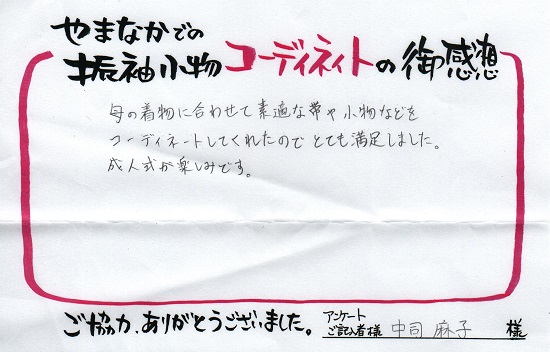 やまなかでの
振袖小物コーディネイトの御感想
母の着物に合わせて素適な帯や小物などを
コーディネートしてくれたのでとても満足しました。
成人式が楽しみです。
ご協力、ありがとうございました。
アンケート
ご記入者様 中司 麻子 様